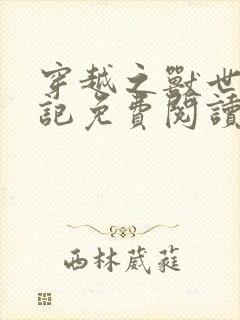 穿越之獸世
記免費閱讀
西林葳蕤